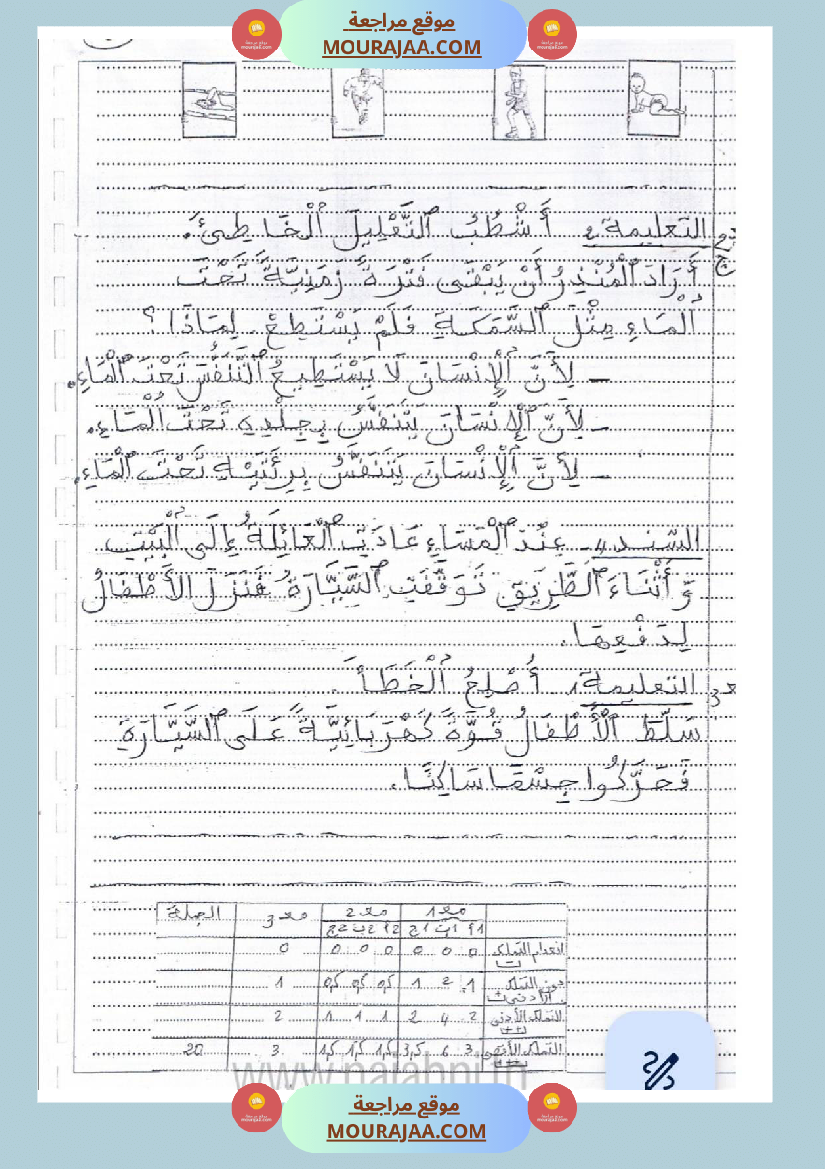 موقع مراجعة
MOURAJAA.COM
التعليمة 2 أَشْطُبُ ٱلتَّعْلِيلَ ٱلْخَاطِئَ.
أَرَادَ ٱلْمُنْذِرُ أَنْ يَبْقَى فَتْرَةً زَمَنِيَّةً تَحْتَ
ٱلْمَاءِ مِثْلَ ٱلسَّمَكَةِ فَلَمْ يَسْتَطِعْ. لِمَاذَا ؟
– لِأَنَّ ٱلْإِنْسَانَ لَا يَسْتَطِيعُ ٱلتَّنَفُّسَ تَحْتَ ٱلْمَاءِ.
– لِأَنَّ ٱلْإِنْسَانَ يَتَنَفَّسُ بِجِلْدِهِ تَحْتَ ٱلْمَاءِ.
– لِأَنَّ ٱلْإِنْسَانَ يَتَنَفَّسُ بِرِئَتَيْهِ تَحْتَ ٱلْمَاءِ.
السّند 4 – عِنْدَ ٱلْمَسَاءِ عَادَتِ ٱلْعَائِلَةُ إِلَى ٱلْبَيْتِ
وَ أَثْنَاءَ ٱلطَّرِيقِ تَوَقَّفَتِ ٱلسَّيَّارَةُ فَنَزَلَ الأَطْفَالُ
لِدَفْعِهَا.
مع3 التعليمة 1 أُصْلِحُ ٱلْخَطَأَ.
سَلَّطَ ٱلْأَطْفَالُ قُوَّةً كَهْرَبَائِيَّةً عَلَى ٱلسَّيَّارَةِ
فَحَرَّكُوا جِسْمًا سَاكِنًا.
مع1 مع2 مع3 الجملة
1أ 1ب 1ج 2أ 2ب 2ج
انعدام التملك 0 0 0 0 0 0 0
دون التملك الأدنى 1 2 1 0,5 0,5 0,5 1
التملك الأدنى 2 4 2 1 1 1 2
التملك الأقصى 3 6 3,5 1,5 1,5 1,5 3 20
www.najahni.tn
موقع مراجعة
MOURAJAA.COM